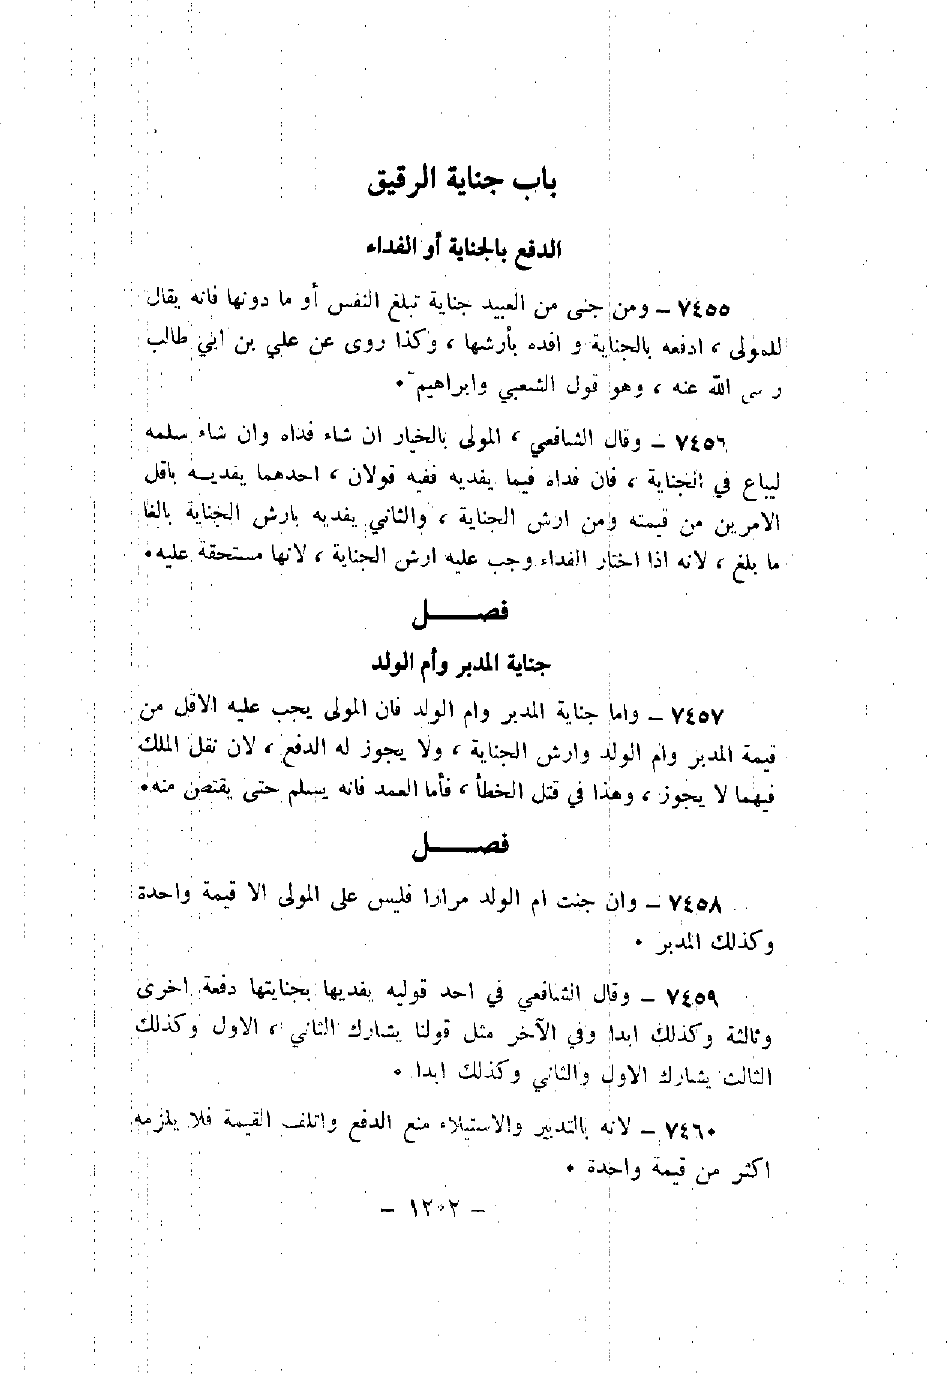 باب جناية الرقيق
الدفع بالجناية أو الفداء
٧٤٥٥ – ومن جنى من العبيد جناية تبلغ النفس أو ما دونها فانه يقال
للمولى ، ادفعه بالجناية و افده بأرشها ، وكذا روى عن علي بن ابي طالب
ر سى الله عنه ، وهو قول الشعبي وابراهيم ٠
٧٤٥٦ – وقال الشافعي ، المولى بالخيار ان شاء فداه وان شاء سلمه
ليباع في الجناية ، فان فداه فيما يفديه ففيه قولان ، احدهما يفديــه باقل
الامرين من قيمته ومن ارش الجناية ، والثاني يفديه بارش الجناية بالغا
ما بلغ ، لانه اذا اختار الفداء وجب عليه ارش الجناية ، لانها مستحقة عليه ٠
فصــــــل
جناية المدبر وأم الولد
٧٤٥٧ – واما جناية المدبر وام الولد فان المولى يجب عليه الاقل من
قيمة المدبر وام الولد وارش الجناية ، ولا يجوز له الدفع ، لان نقل الملك
فيهما لا يجوز ، وهذا في قتل الخطأ ، فأما العمد فانه يسلم حتى يقتص منه ٠
فصــــــل
٧٤٥٨ – وان جنت ام الولد مرارا فليس على المولى الا قيمة واحدة
وكذلك المدبر ٠
٧٤٥٩ – وقال الشافعي في احد قوليه يفديها بجنايتها دفعة اخرى
وثالثة وكذلك ابدا وفي الآخر مثل قولنا يشارك الثاني ، الاول وكذلك
الثالث يشارك الاول والثاني وكذلك ابدا ٠
٧٤٦٠ – لانه بالتدبير والاستيلاء منع الدفع واتلف القيمة فلا يلزمه
اكثر من قيمة واحدة ٠
– ١٢٠٢ –